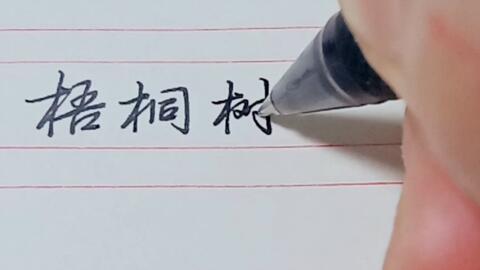 梧桐树